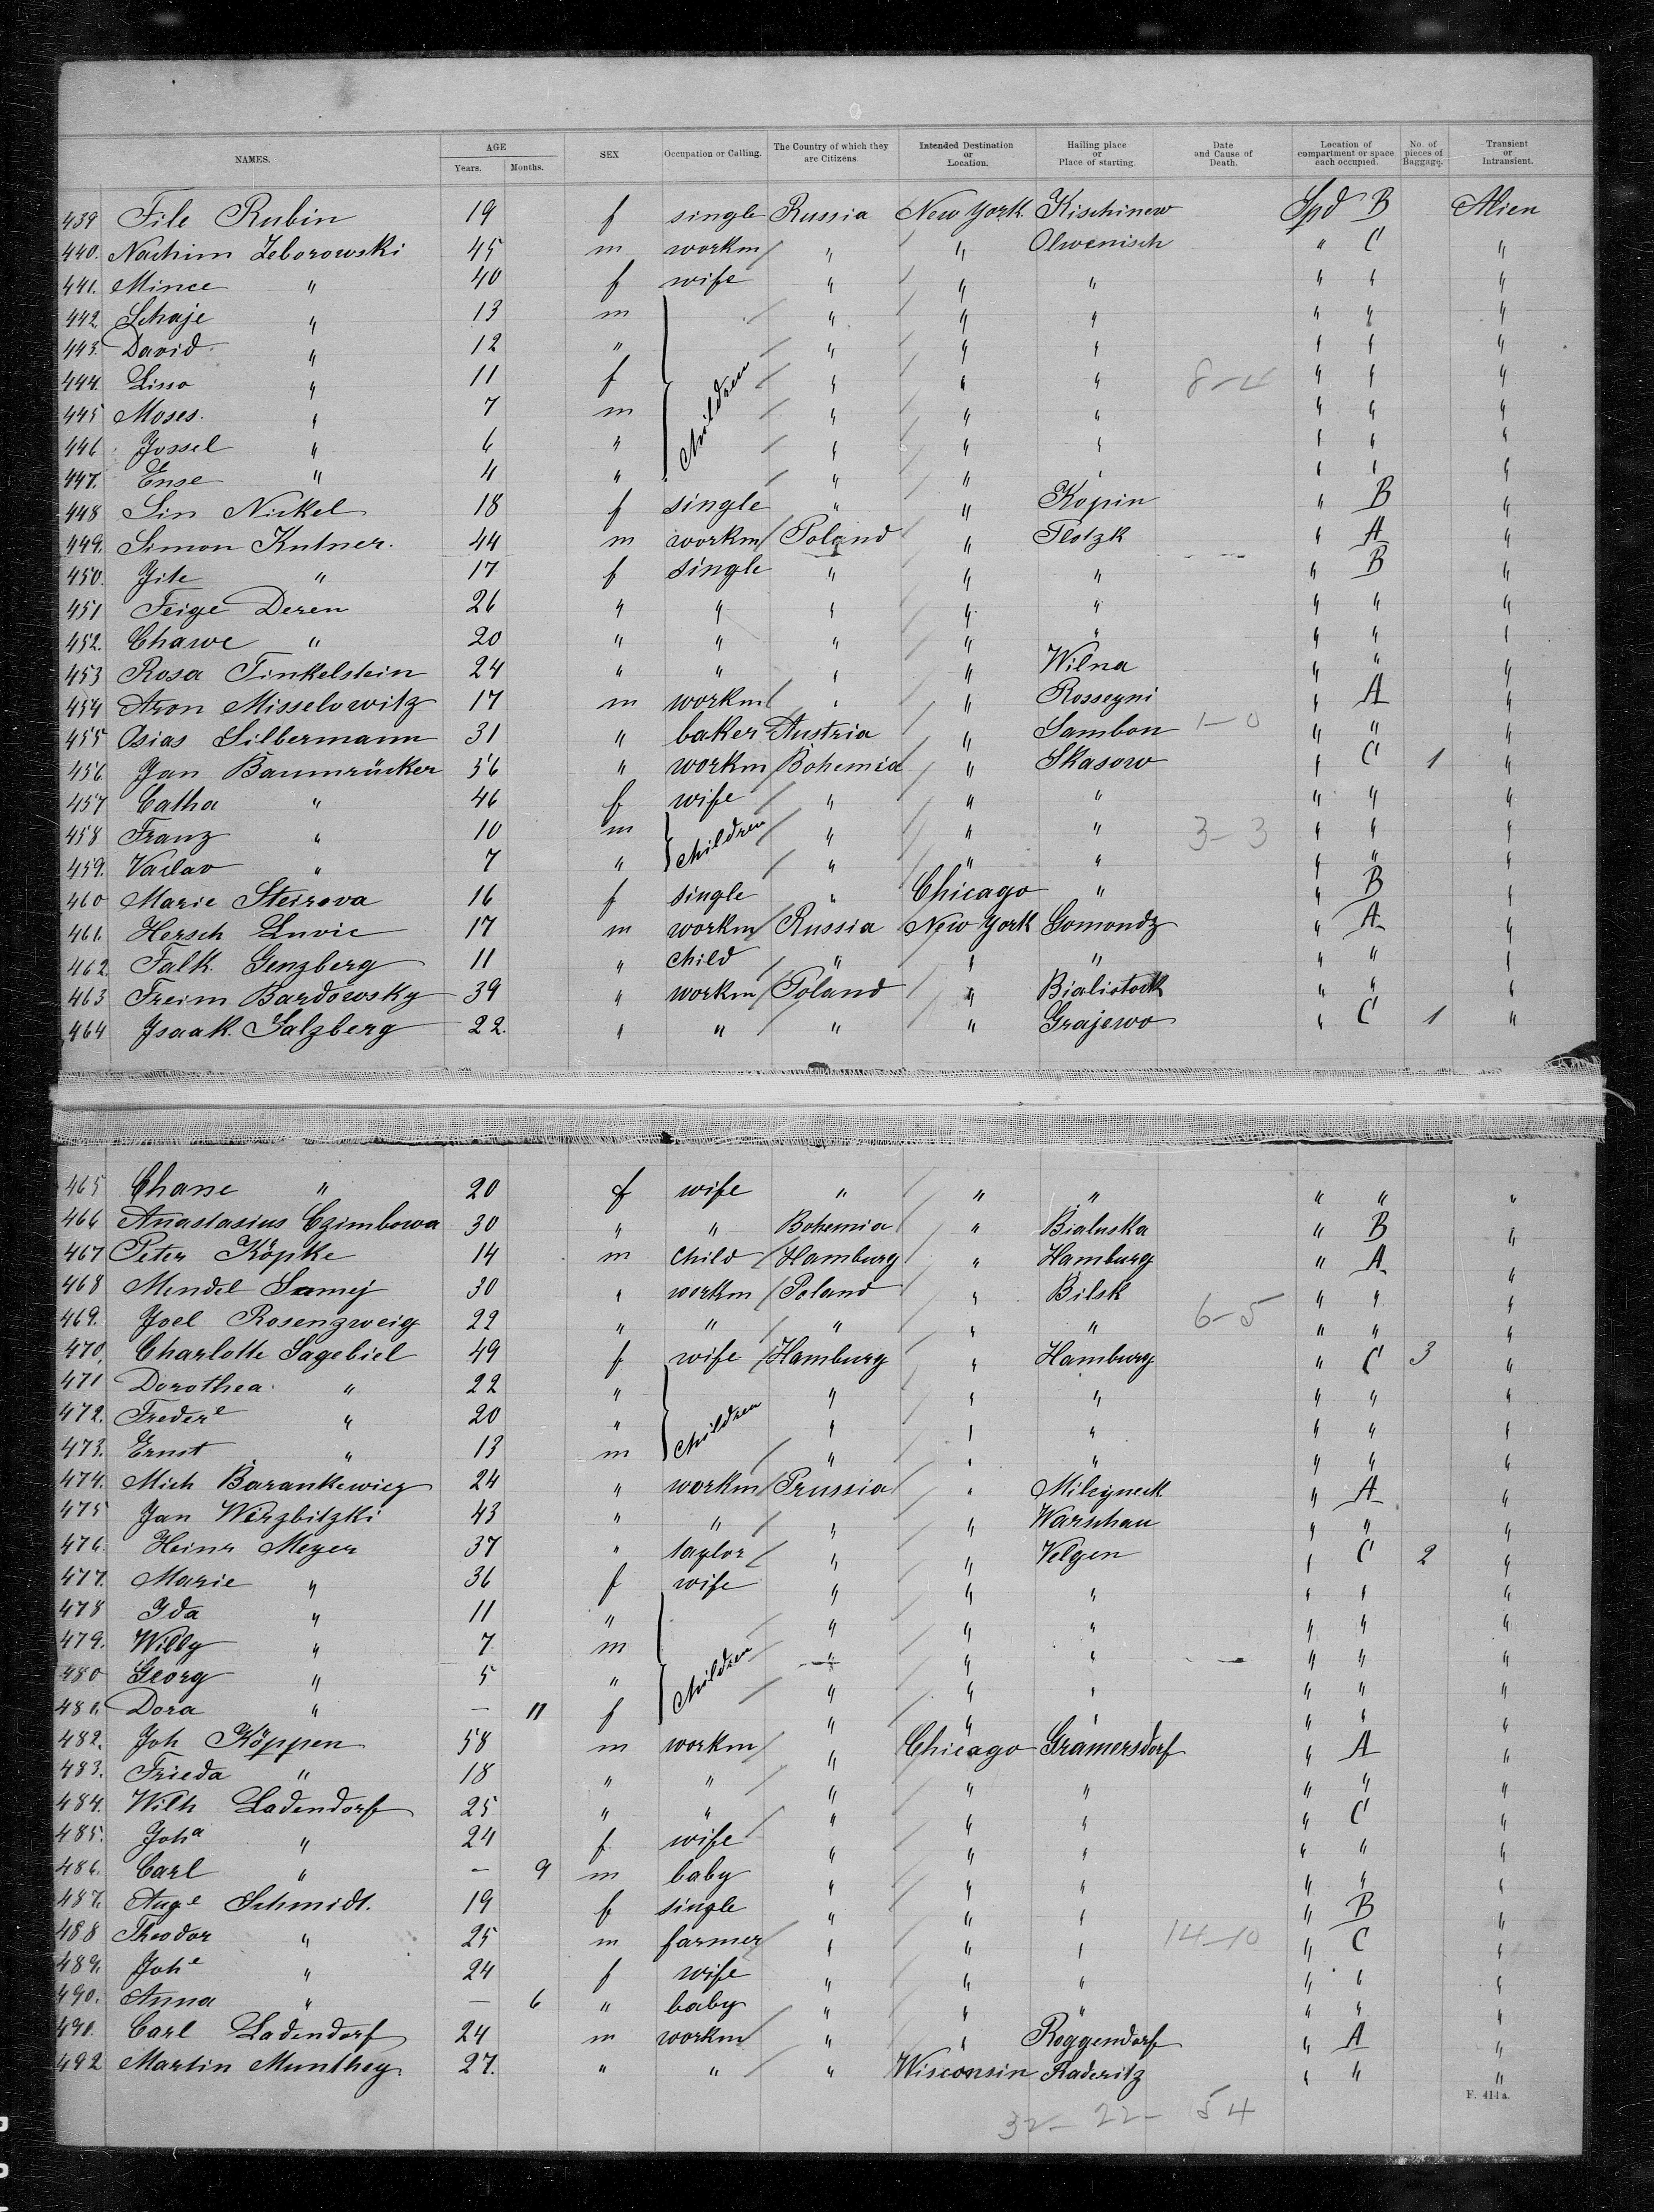 NAMES. AGE Years. Months. SEX Occupation or Calling. The Country of which they are Citizens. Intended Destination or Location. Hailing place or Place of starting. Date and Cause of Death. Location of compartment or space each occupied. No. of pieces of Baggage. Transient or Intransient.
439 File Rubin 19 f single Russia New York Kischinew Spd B Alien
440. Nachim Zeborowski 45 m workm " " Olwenisch " C "
441. Mince " 40 f wife " " " " " "
442. Schaje " 13 m " " " " " "
443. David " 12 " " " " " " "
444. Lisso " 11 f Children " " " 8-4 " " "
445 Moses. " 7 m " " " " " "
446 Jossel " 6 " " " " " " "
447. Ense " 4 " " " " " " "
448 Lin Nickel 18 f single " " Kopin " B "
449. Simon Kutner. 44 m workm Poland " Plotzk " A "
450. Jite " 17 f single " " " " B "
451 Feige Deren 26 " " " " " " " "
452. Chawe " 20 " " " " " " " "
453 Rosa Finkelstein 24 " " " " Wilna " " "
454 Aron Misselowitz 17 m workm " " Rosseyni " A "
455 Osias Silbermann 31 " baker Austria " Sambon 1-0 " " "
456. Jan Baumrücker 56 " workm Bohemia " Skasow " C 1 "
457 Catha " 46 f wife " " " " " "
458 Franz " 10 m children " " " 3-3 " " "
459. Vaclav " 7 " " " " " " "
460 Marie Steirova 16 f single " Chicago " " B "
461. Hersch Luvic 17 m workm Russia New York Gomondz " A "
462. Falk. Genzberg 11 " child " " " " " "
463 Freim Bardowsky 39 " workm Poland " Bialistock " " "
464 Isaak. Salzberg 22. " " " " Grajewo " C 1 "
465 Chane " 20 f wife " " " " " "
466 Anastasius Czimbowa 30 " " Bohemia " Bialuska " B "
467 Peter Köpke 14 m child Hamburg " Hamburg " A "
468 Mendel Samej 30 " workm Poland " Bilsk " " "
469. Joel Rosenzweig 22 " " " " " 6-5 " " "
470. Charlotte Sagebiel 49 f wife Hamburg " Hamburg " C 3 "
471 Dorothea " 22 " " " " " " "
472. Federe " 20 " children " " " " " "
473. Ernst " 13 m " " " " " "
474. Mich Barankewicz 24 " workm Prussia " Milcyneck " A "
475 Jan Wirzbitzki 43 " " " " Warschau " " "
476. Heinr Meyer 37 " taylor " " Velgen " C 2 "
477. Marie " 36 f wife " " " " " "
478 Ida " 11 " " " " " " "
479. Willy " 7 m " " " " " "
480 Georg " 5 " children " " " " " "
481. Dora " — 11 f " " " " " "
482. Joh Köppen 58 m workm " Chicago Gramersdorf " A "
483. Frieda " 18 " " " " " " " "
484. Wilh Ladendorf 25 " " " " " " C "
485. Joha " 24 f wife " " " " " "
486. Carl " — 9 m baby " " " " " "
487. Auge Schmidt. 19 f single " " " " B "
488 Theodor " 25 m farmer " " " 14-10 " C "
489. Johe " 24 f wife " " " " " "
490. Anna " — 6 " baby " " " " " "
491. Carl Ladendorf 24 m workm " " Roggendorf " A "
492 Martin Munthey 27. " " " Wisconsin Raderitz " " "
F. 414a.
32- 22- 54